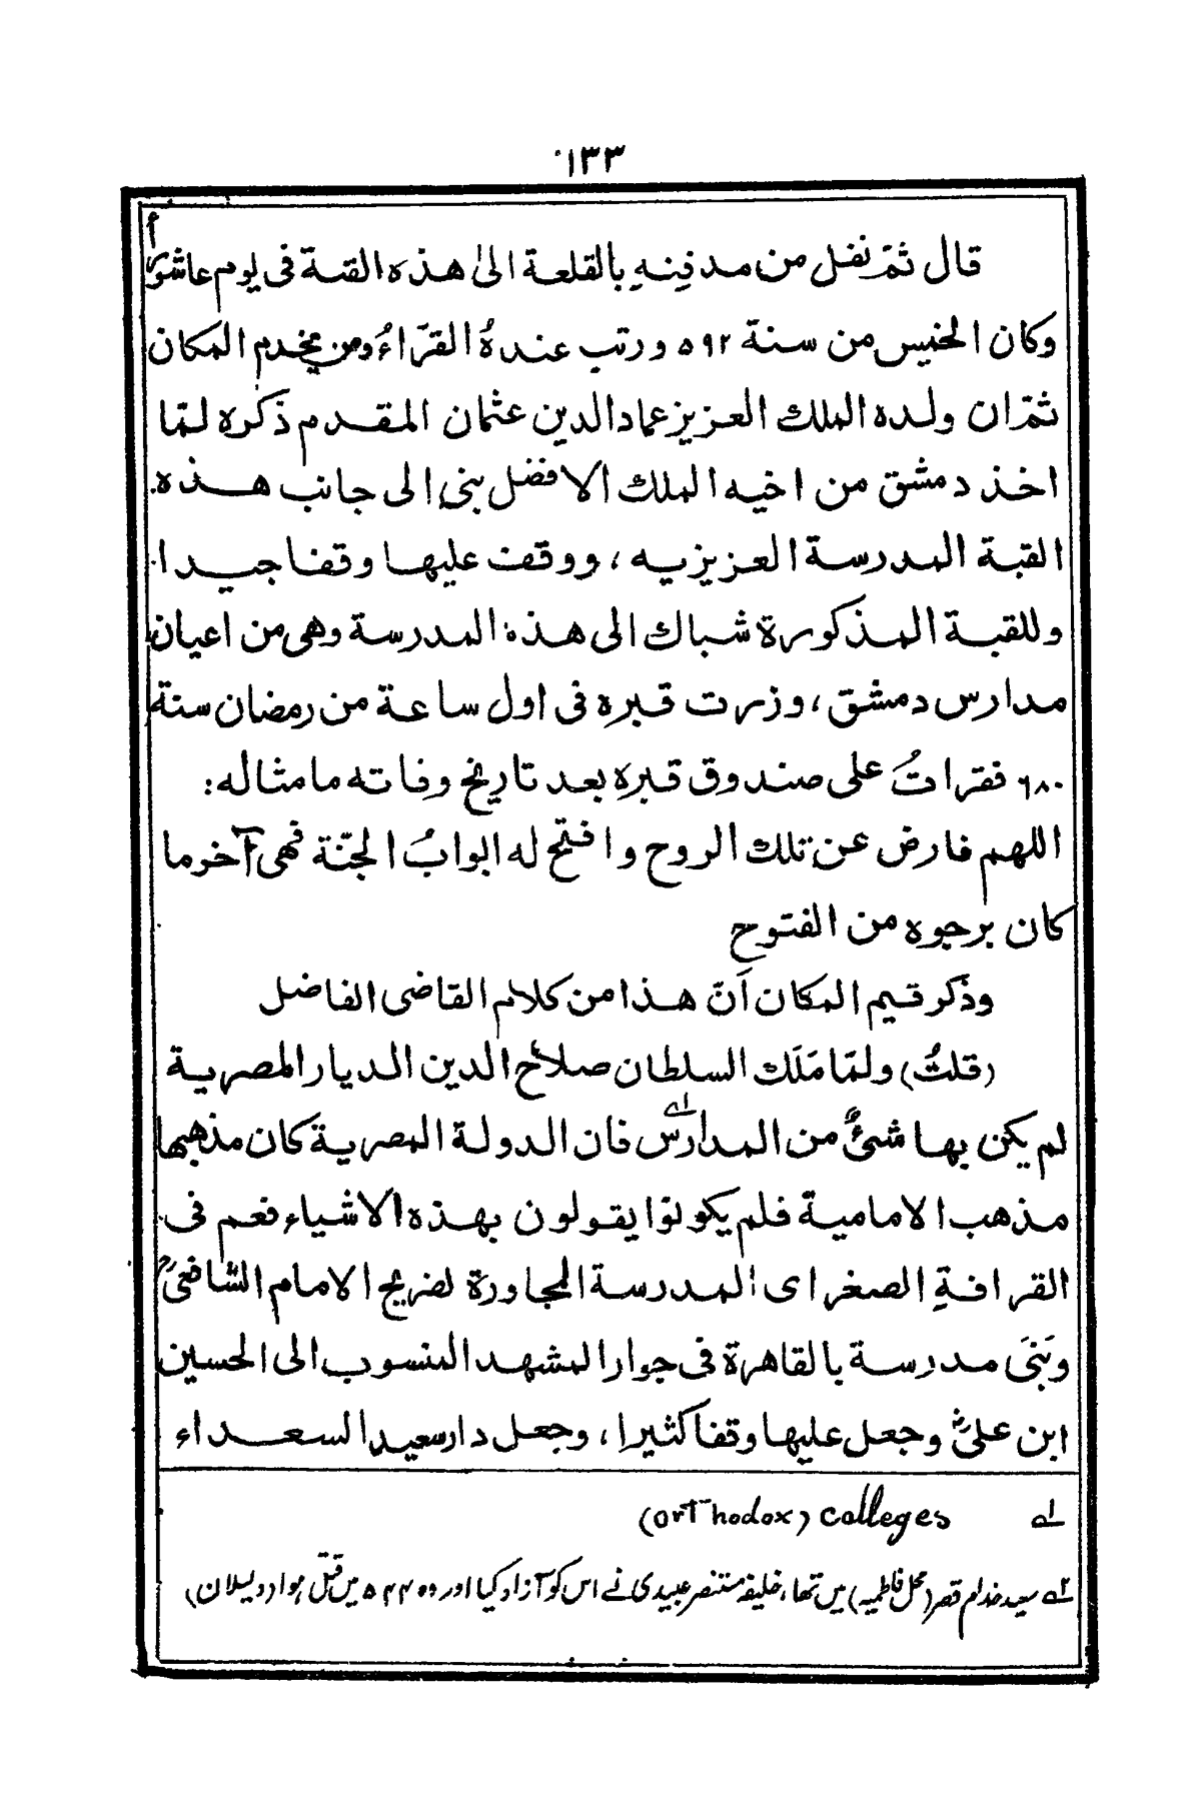 ١٣٣
قال ثمّ نقل من مدفِنِهِ بالقلعة الىٰ هذه القبة فى يوم عاشوراء
وكان الخميس من سنة ٥٩٢ ورتب عندهُ القرّاءُ ومن يخدم المكان
ثمّ ان ولده الملك العزيز عماد الدين عثمان المقدم ذكره لمّا
اخذ دمشق من اخيه الملك الافضل بنى الى جانب هذه
القبة المدرسة العزيزيه ، ووقف عليها وقفا جيدا
وللقبة المذكورة شباك الى هذه المدرسة وهى من اعيان
مدارس دمشق ، وزرت قبره فى اول ساعة من رمضان سنة
٦٨٠ فقراتُ على صندوق قبره بعد تاريخ وفاته ما مثاله :
اللهم فارض عن تلك الروح وافتح له ابوابُ الجنّة فهى آخر ما
كان يرجوه من الفتوح
وذكر قيم المكان اَنّ هذا من كلام القاضى الفاضل
(قلتُ) ولمّا مَلَك السلطان صلاح الدين الديار المصرية
لم يكن بها شئٌ من المدارس ١ فان الدولة المصرية كان مذهبها
مذهب الامامية فلم يكونوا يقولون بهذه الاشياء فعم فى
القرافةِ الصغرا ى المدرسة المجاورة لضريح الامام الشافعىؒ
وبَنَى مدرسة بالقاهرة فى جوار المشهد المنسوب الى الحسين
ابن علىؓ وجعل عليها وقفا كثيرا ، وجعل دار سعيد السعداء
١ (orthodox) colleges
٢ سعيد خدام قصر (محل فاطميه) میں تھا ، خلیفہ مستنصر عبیدی نے اس کو آزاد کیا اور وہ ٥٤٤ میں قتل ہوا (دیسلان)